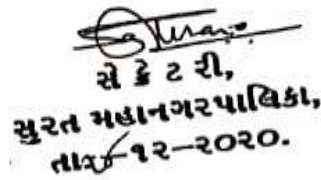 સેક્રેટરી,
સુરત મહાનગરપાલિકા,
તા. -૧૨-૨૦૨૦.